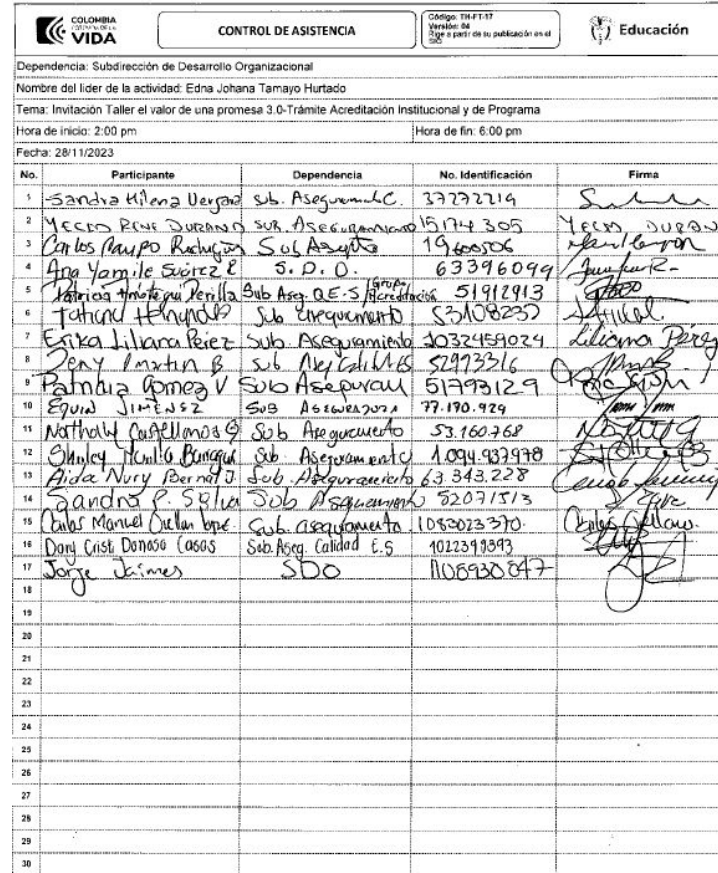 COLOMBIA
POTENCIA DE LA
VIDA
CONTROL DE ASISTENCIA
Código: TH-FT-17
Versión: 04
Rige a partir de su publicación en el
SIG
Educación
Dependencia: Subdirección de Desarrollo Organizacional
Nombre del líder de la actividad: Edna Johana Tamayo Hurtado
Tema: Invitación Taller el valor de una promesa 3.0-Trámite Acreditación Institucional y de Programa
Hora de inicio: 2:00 pm Hora de fin: 6:00 pm
Fecha: 28/11/2023
No. Participante Dependencia No. Identificación Firma
1 Sandra Milena Vergara Sub. 37272219
2 YECID RENE DURAN D SUB. ASEGURAMIENTO 15174305 YECID DURAN
3 Carlos Sub 19600506
4 Ana Yamile Suárez R S.D.O. 63396099
5 Patricia Perilla Sub Aseg. Q.E.S/Grupo Acreditación 51912913
6 Tatiana Sub aseguramiento 53108237
7 Erika Liliana Pérez Sub. Aseguramiento 1032459024 Liliana Pérez
8 Martin B Sub 52973316
9 Patricia Gomez V Sub 51793129
10 EQUIN JIMENEZ SUB 77.170.929
11 Nathaly Castellanos G Sub Aseguramiento 53.160.768
12 Shirley Sub. Aseguramiento 1.094.937978
13 Aida Nury Bernal J. Sub. Aseguramiento 63.343.228
14 Sandra P. Silva Sub Aseguramiento 52071513
15 Carlos Manuel Sub. aseguramiento 1083023370.
16 Dany Crist Donoso Casas Sub. Aseg. Calidad E.S 1022398393
17 Jorge Jaimes SDO
18
19
20
21
22
23
24
25
26
27
28
29
30